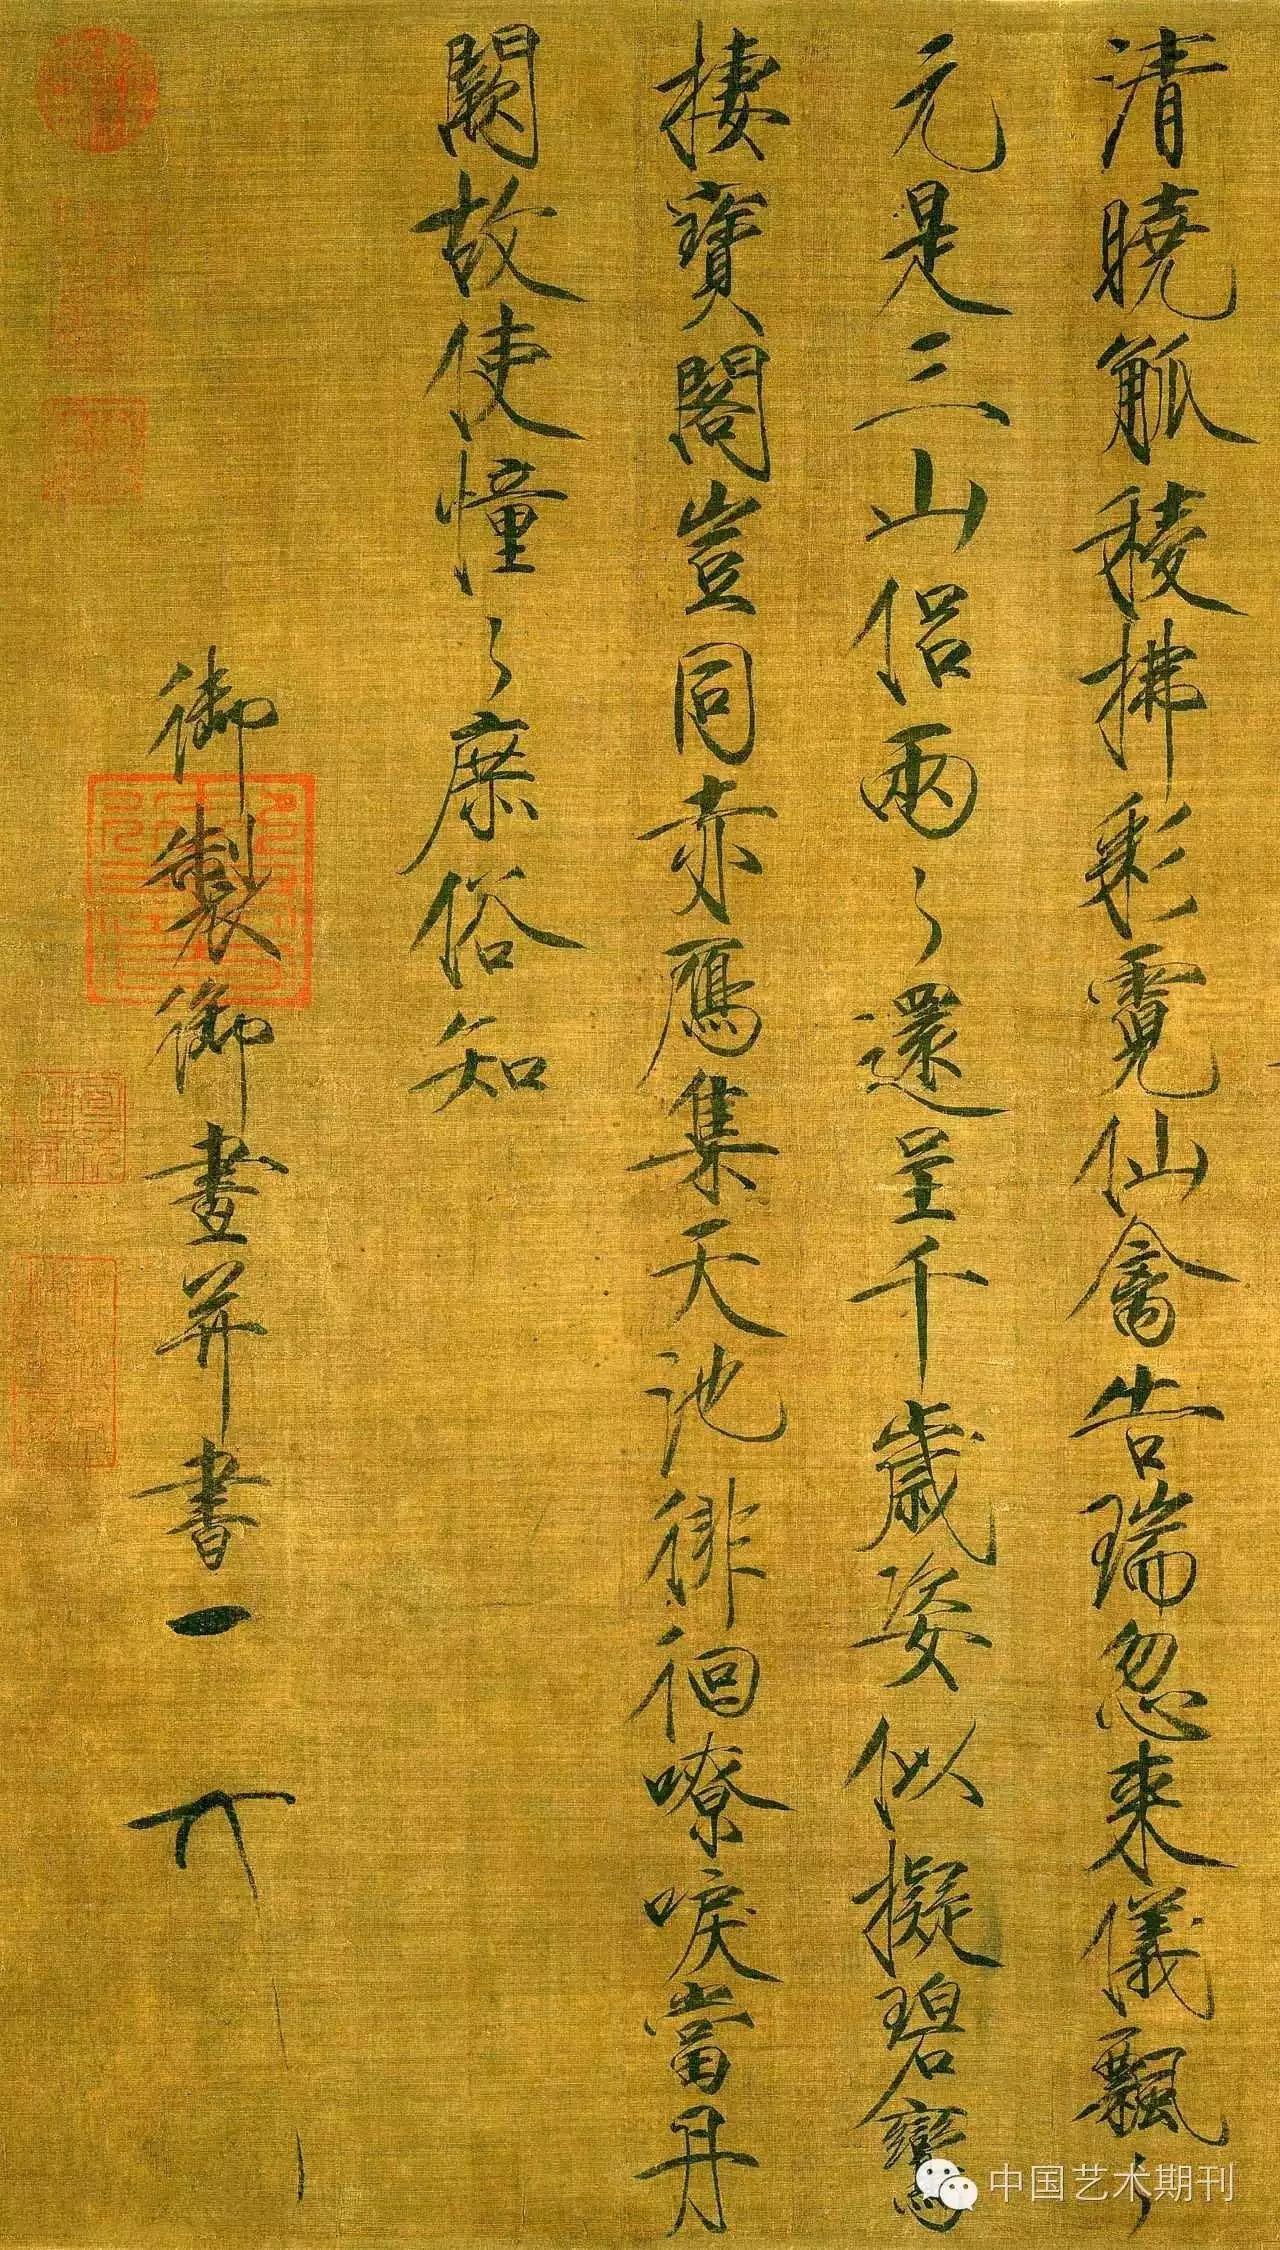 清曉觚稜拂彩霓仙禽告瑞忽来儀飄〻
元是三山侶兩〻還呈千歲姿似擬碧鸞
棲寶閣豈同赤鴈集天池徘徊嘹唳當丹
闕故使憧〻庶俗知
御製御畫并書
中国艺术期刊